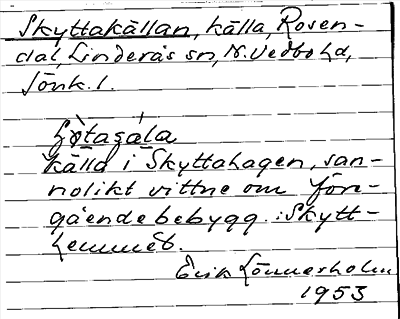 Skyttakällan, källa, Rosen-
dal, Linderås sn, N. Vedbo hd,
Jönk. l.
källa i Skyttahagen, san-
nolikt vittne om före-
gående bebygg. i Skytt-
hemmet.
Erik Lönnerholm
1953